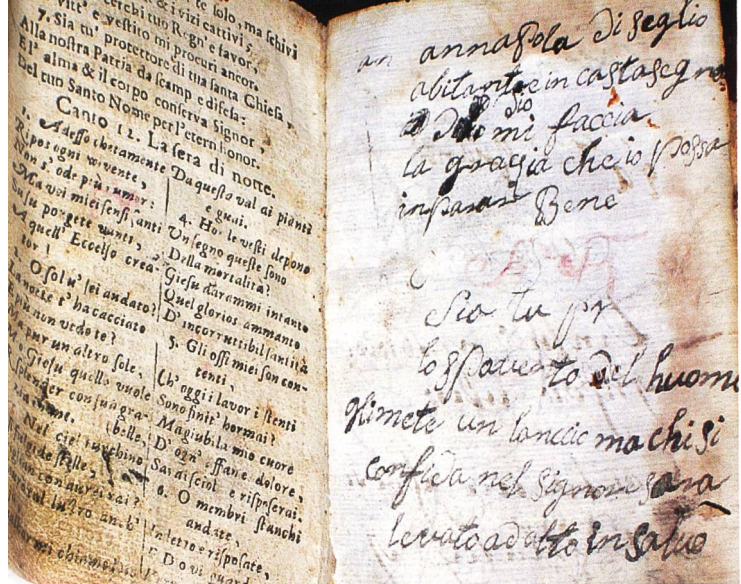 te solo, ma schivi
& i vizi cattivi;
cerchi tuo Regn' e favor,
Vitt' e vestito mi procuri ancor.
7. Sia tu' protettore di tua santa Chiesa,
Alla nostra Patria da scamp e difesa:
E l' alma & il corpo conserva Signor,
Del tuo Santo Nome per l' etern honor.
Canto 12. La sera di notte.
1. Adesso chetamente
Riposs ogni vivente,
Non s' ode più rumor:
Ma voi miei sensi,
Su su porgete
A quell' Eccelso crea-
tor!
2. O sol u' sei andato?
La notte t' hà cacciato
E più non vedo te?
pur un altro sole,
Giesu quello vuole
splender con sua gra-
Nel ciel turchino
stelle,
Da questo val di pianti
e guai.
4. Hor le vesti depono
Un segno queste sono
Della mortalità?
Giesu darammi intanto
Quel glorios ammanto
D' incorruttibil santità
5. Gli ossi miei son con-
tenti,
Ch' oggi i lavor i stenti
Sono finit' hormai?
Magiubila mio cuore
D' ogn' affan e dolore,
Sarai sciol e risposerai.
6. O membri stanchi
andate,
In letto e risposate,
an annapola di seglio
abitante in castasegna
dio
mi faccia
la grazia che io possa
inparar Bene
Sia tu pr
lo spavento del huomo
gli mete un laccio ma chi si
confida nel signor sara
levato ad alto in salvo